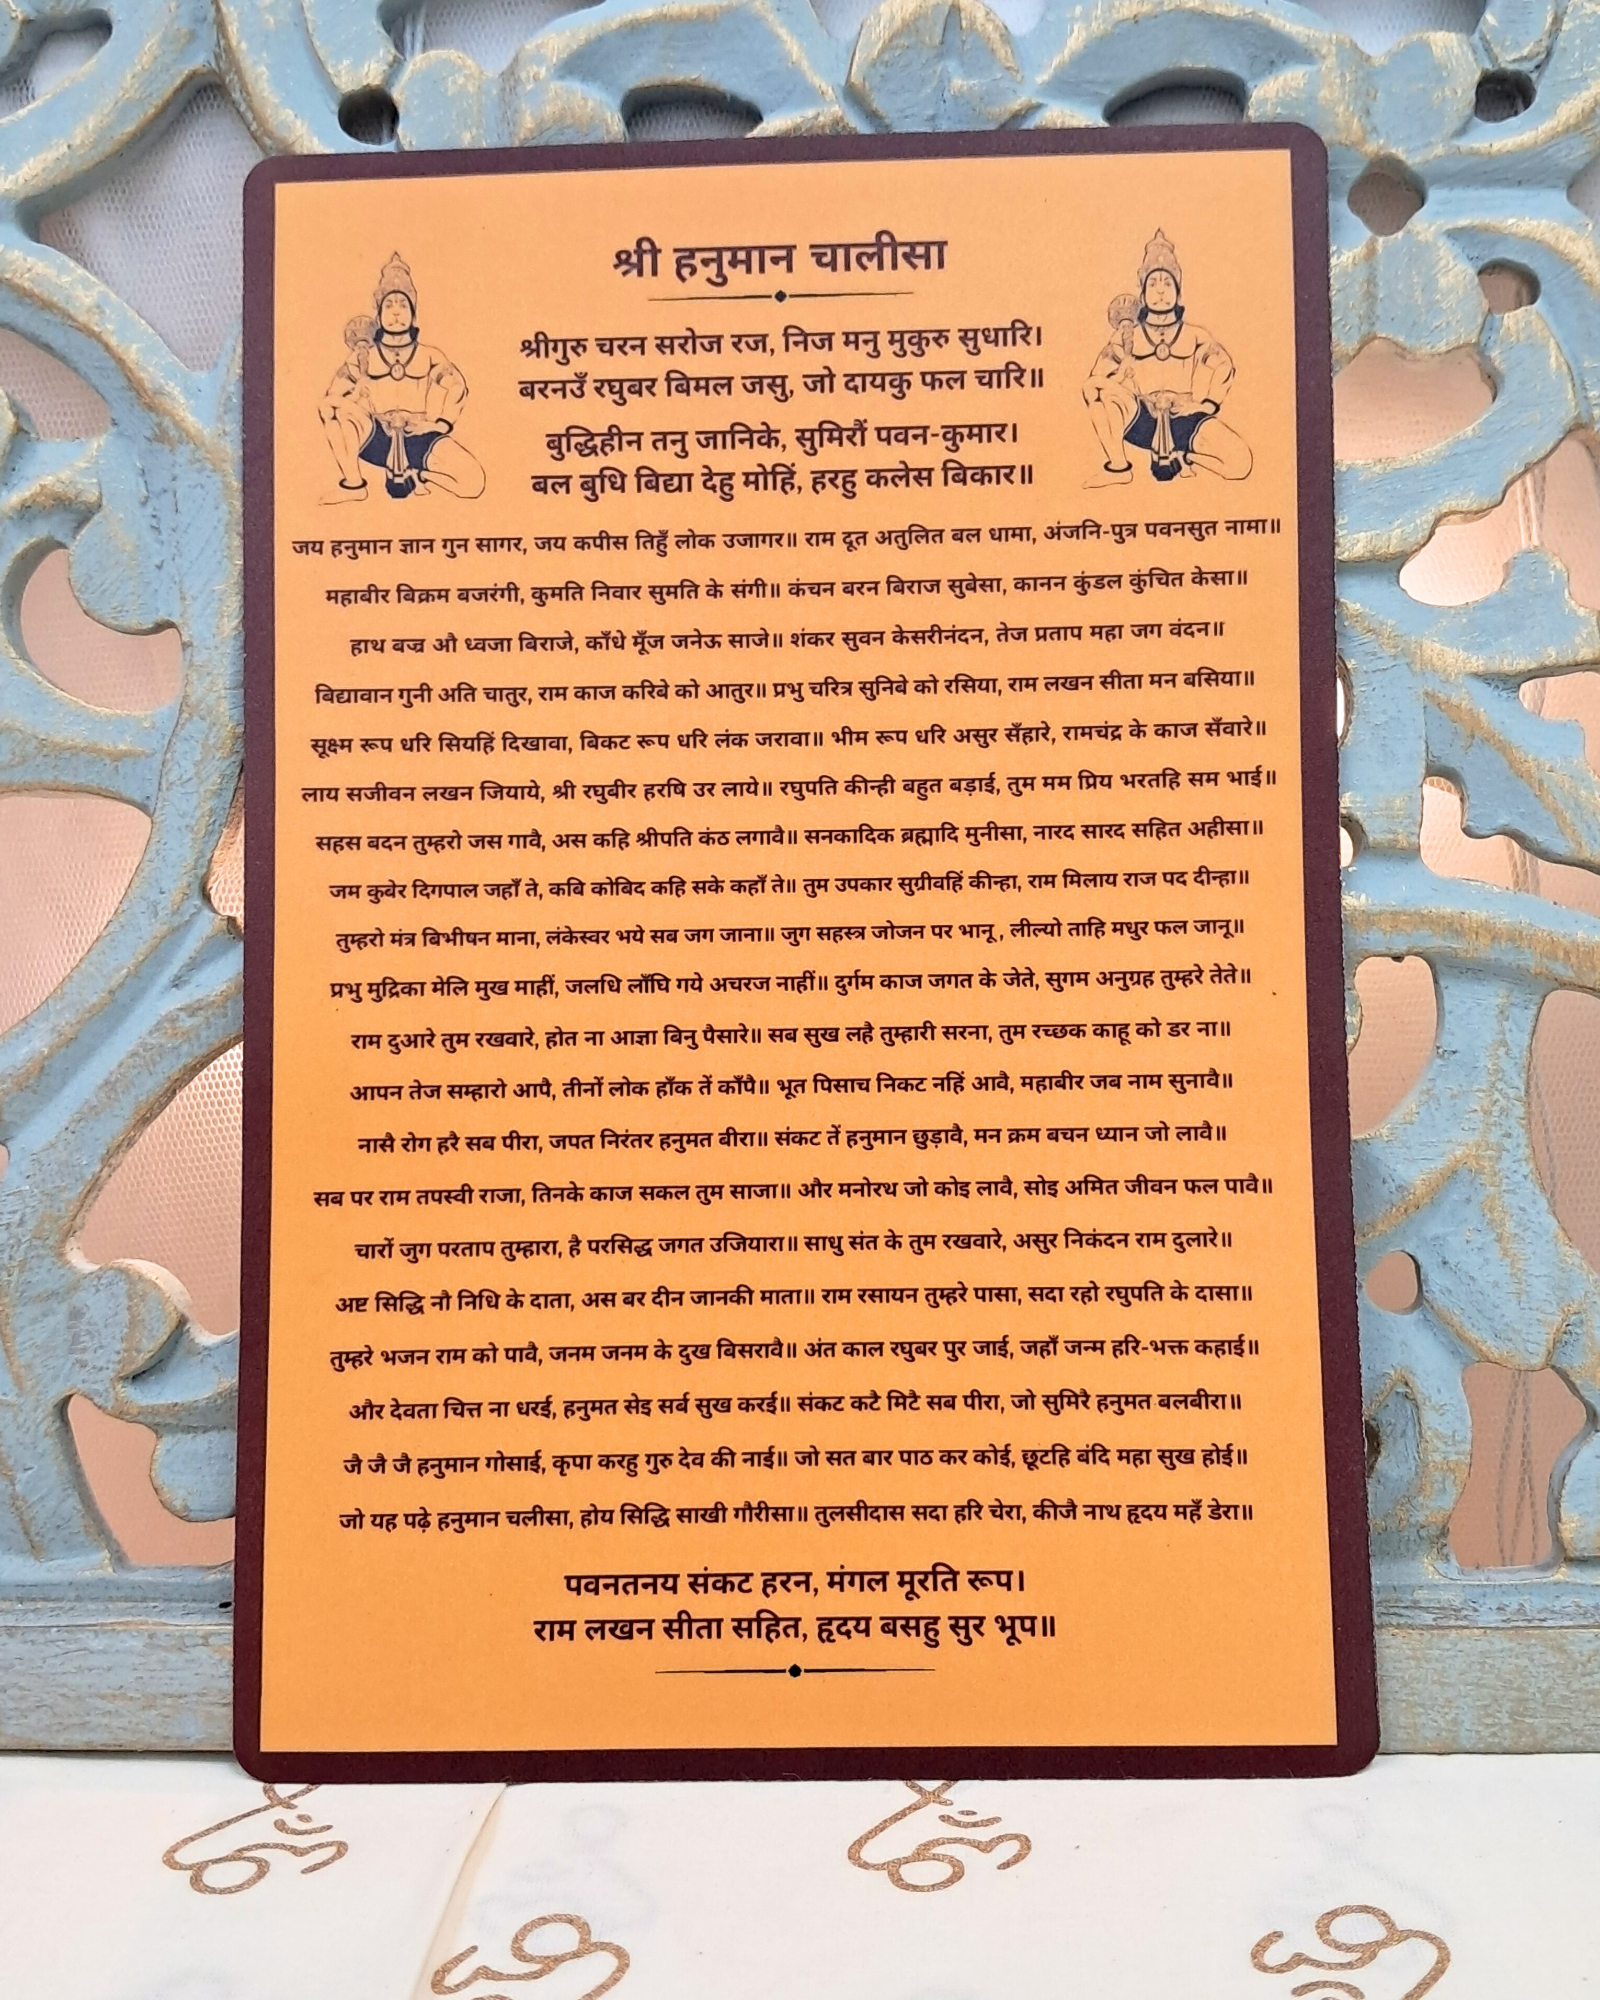 श्री हनुमान चालीसा
श्रीगुरु चरन सरोज रज, निज मनु मुकुरु सुधारि।
बरनउँ रघुबर बिमल जसु, जो दायकु फल चारि॥
बुद्धिहीन तनु जानिके, सुमिरौं पवन-कुमार।
बल बुधि बिद्या देहु मोहिं, हरहु कलेस बिकार॥
जय हनुमान ज्ञान गुन सागर, जय कपीस तिहुँ लोक उजागर॥ राम दूत अतुलित बल धामा, अंजनि-पुत्र पवनसुत नामा॥
महाबीर बिक्रम बजरंगी, कुमति निवार सुमति के संगी॥ कंचन बरन बिराज सुबेसा, कानन कुंडल कुंचित केसा॥
हाथ बज्र औ ध्वजा बिराजे, काँधे मूँज जनेऊ साजे॥ शंकर सुवन केसरीनंदन, तेज प्रताप महा जग वंदन॥
बिद्यावान गुनी अति चातुर, राम काज करिबे को आतुर॥ प्रभु चरित्र सुनिबे को रसिया, राम लखन सीता मन बसिया॥
सूक्ष्म रूप धरि सियहिं दिखावा, बिकट रूप धरि लंक जरावा॥ भीम रूप धरि असुर सँहारे, रामचंद्र के काज सँवारे॥
लाय सजीवन लखन जियाये, श्री रघुबीर हरषि उर लाये॥ रघुपति कीन्ही बहुत बड़ाई, तुम मम प्रिय भरतहि सम भाई॥
सहस बदन तुम्हरो जस गावै, अस कहि श्रीपति कंठ लगावै॥ सनकादिक ब्रह्मादि मुनीसा, नारद सारद सहित अहीसा॥
जम कुबेर दिगपाल जहाँ ते, कबि कोबिद कहि सके कहाँ ते॥ तुम उपकार सुग्रीवहिं कीन्हा, राम मिलाय राज पद दीन्हा॥
तुम्हरो मंत्र बिभीषन माना, लंकेस्वर भये सब जग जाना॥ जुग सहस्त्र जोजन पर भानू , लील्यो ताहि मधुर फल जानू॥
प्रभु मुद्रिका मेलि मुख माहीं, जलधि लाँघि गये अचरज नाहीं॥ दुर्गम काज जगत के जेते, सुगम अनुग्रह तुम्हरे तेते॥
राम दुआरे तुम रखवारे, होत ना आज्ञा बिनु पैसारे॥ सब सुख लहै तुम्हारी सरना, तुम रच्छक काहू को डर ना॥
आपन तेज सम्हारो आपै, तीनों लोक हाँक तें काँपै॥ भूत पिसाच निकट नहिं आवै, महाबीर जब नाम सुनावै॥
नासै रोग हरै सब पीरा, जपत निरंतर हनुमत बीरा॥ संकट तें हनुमान छुड़ावै, मन क्रम बचन ध्यान जो लावै॥
सब पर राम तपस्वी राजा, तिनके काज सकल तुम साजा॥ और मनोरथ जो कोइ लावै, सोइ अमित जीवन फल पावै॥
चारों जुग परताप तुम्हारा, है परसिद्ध जगत उजियारा॥ साधु संत के तुम रखवारे, असुर निकंदन राम दुलारे॥
अष्ट सिद्धि नौ निधि के दाता, अस बर दीन जानकी माता॥ राम रसायन तुम्हरे पासा, सदा रहो रघुपति के दासा॥
तुम्हरे भजन राम को पावै, जनम जनम के दुख बिसरावै॥ अंत काल रघुबर पुर जाई, जहाँ जन्म हरि-भक्त कहाई॥
और देवता चित्त ना धरई, हनुमत सेइ सर्ब सुख करई॥ संकट कटै मिटै सब पीरा, जो सुमिरै हनुमत बलबीरा॥
जै जै जै हनुमान गोसाई, कृपा करहु गुरु देव की नाई॥ जो सत बार पाठ कर कोई, छूटहि बंदि महा सुख होई॥
जो यह पढ़े हनुमान चलीसा, होय सिद्धि साखी गौरीसा॥ तुलसीदास सदा हरि चेरा, कीजै नाथ हृदय महँ डेरा॥
पवनतनय संकट हरन, मंगल मूरति रूप।
राम लखन सीता सहित, हृदय बसहु सुर भूप॥